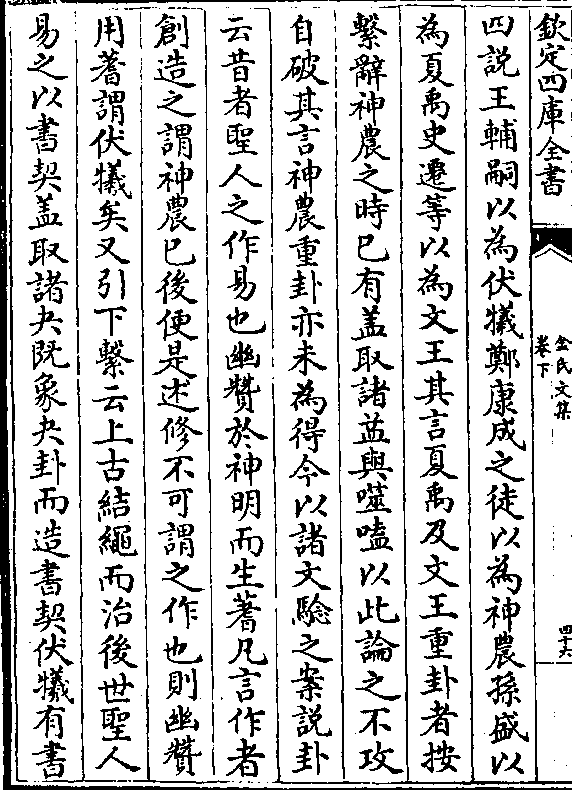 欽定四庫全書
金氏文集
卷下
四十六
四説王輔嗣以為伏犧鄭康成之徒以為神農孫盛以
為夏禹史遷等以為文王其言夏禹及文王重卦者按
繫辭神農之時已有盖取諸益與噬嗑以此論之不攻
自破其言神農重卦亦未為得今以諸文驗之案説卦
云昔者聖人之作易也幽贊於神明而生蓍凡言作者
創造之謂神農已後便是述修不可謂之作也則幽贊
用蓍謂伏犧矣又引下繫云上古結繩而治後世聖人
易之以書契盖取諸夬既象夬卦而造書契伏犧有書